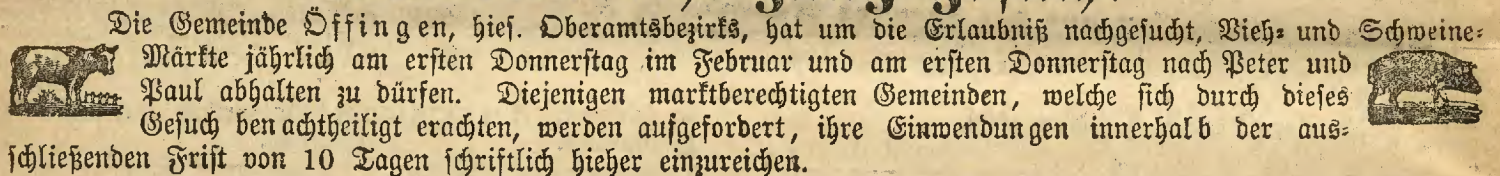 Die Gemeinde Öffingen, hies. Oberamtsbezirks, hat um die Erlaubniß nachgesucht, Vieh- und Schweine-
Märkte jährlich am ersten Donnerstag im Februar und am ersten Donnerstag nach Peter und
Paul abhalten zu dürfen. Diejenigen marktberechtigten Gemeinden, welche sich durch dieses
Gesuch benachtheiligt erachten, werden aufgefordert, ihre Einwendungen innerhalb der aus-
schließenden Frist von 10 Tagen schriftlich hieher einzureichen.